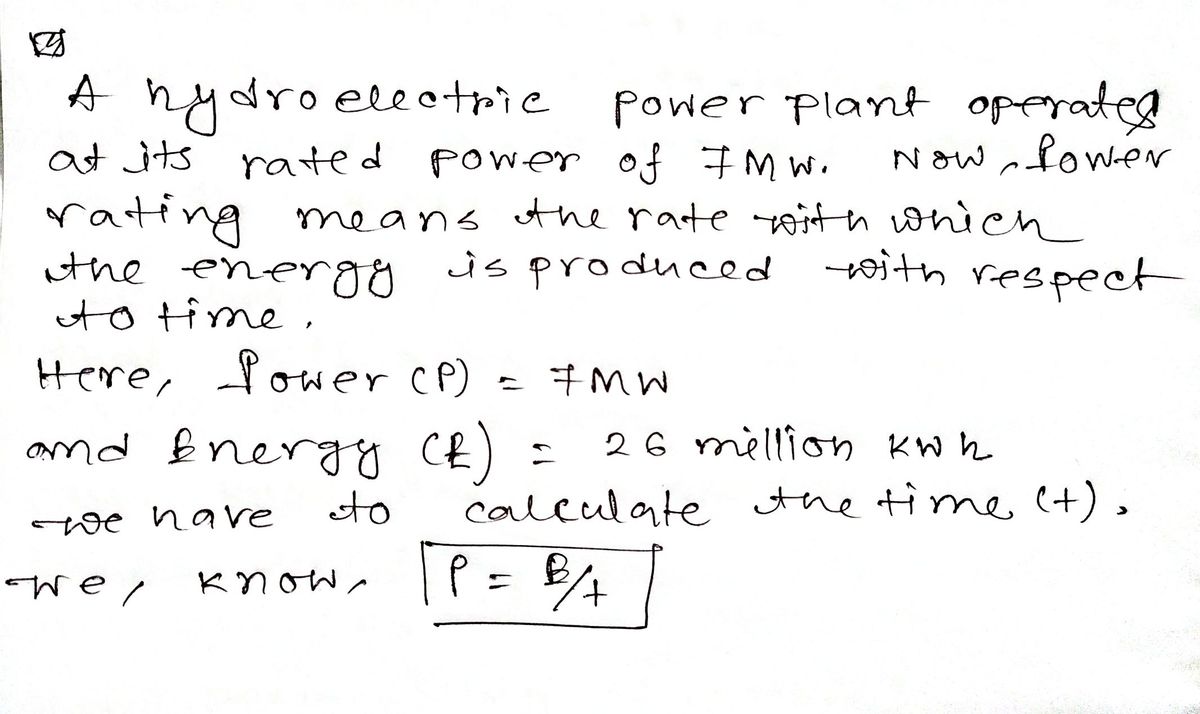 A hydroelectric power plant operates
at its rated power of 7MW. Now, Power
rating means the rate with which
the energy is produced with respect
to time.
Here, Power (P) = 7MW
and Energy (E) = 26 million kwh
we have to calculate the time (t).
we, know, P = E/t